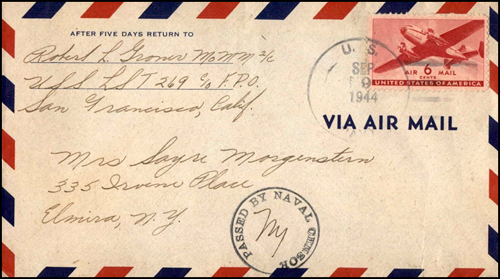 AFTER FIVE DAYS RETURN TO
Robert L Groner MoMM 2/c
USS LST 269 c/o F.P.O.
San Francisco, Calif.
U. S.
SEP
9
1944
AIR 6 MAIL
CENTS
UNITED STATES OF AMERICA
VIA AIR MAIL
Mrs Sayre Morgenstern
335 Irvine Place
Elmira, N.Y.
PASSED BY NAVAL CENSOR